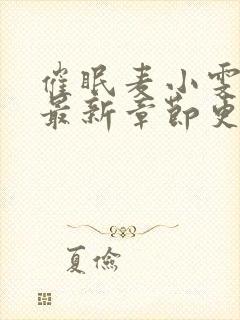 催眠麦小雯
最新章节史
夏俭